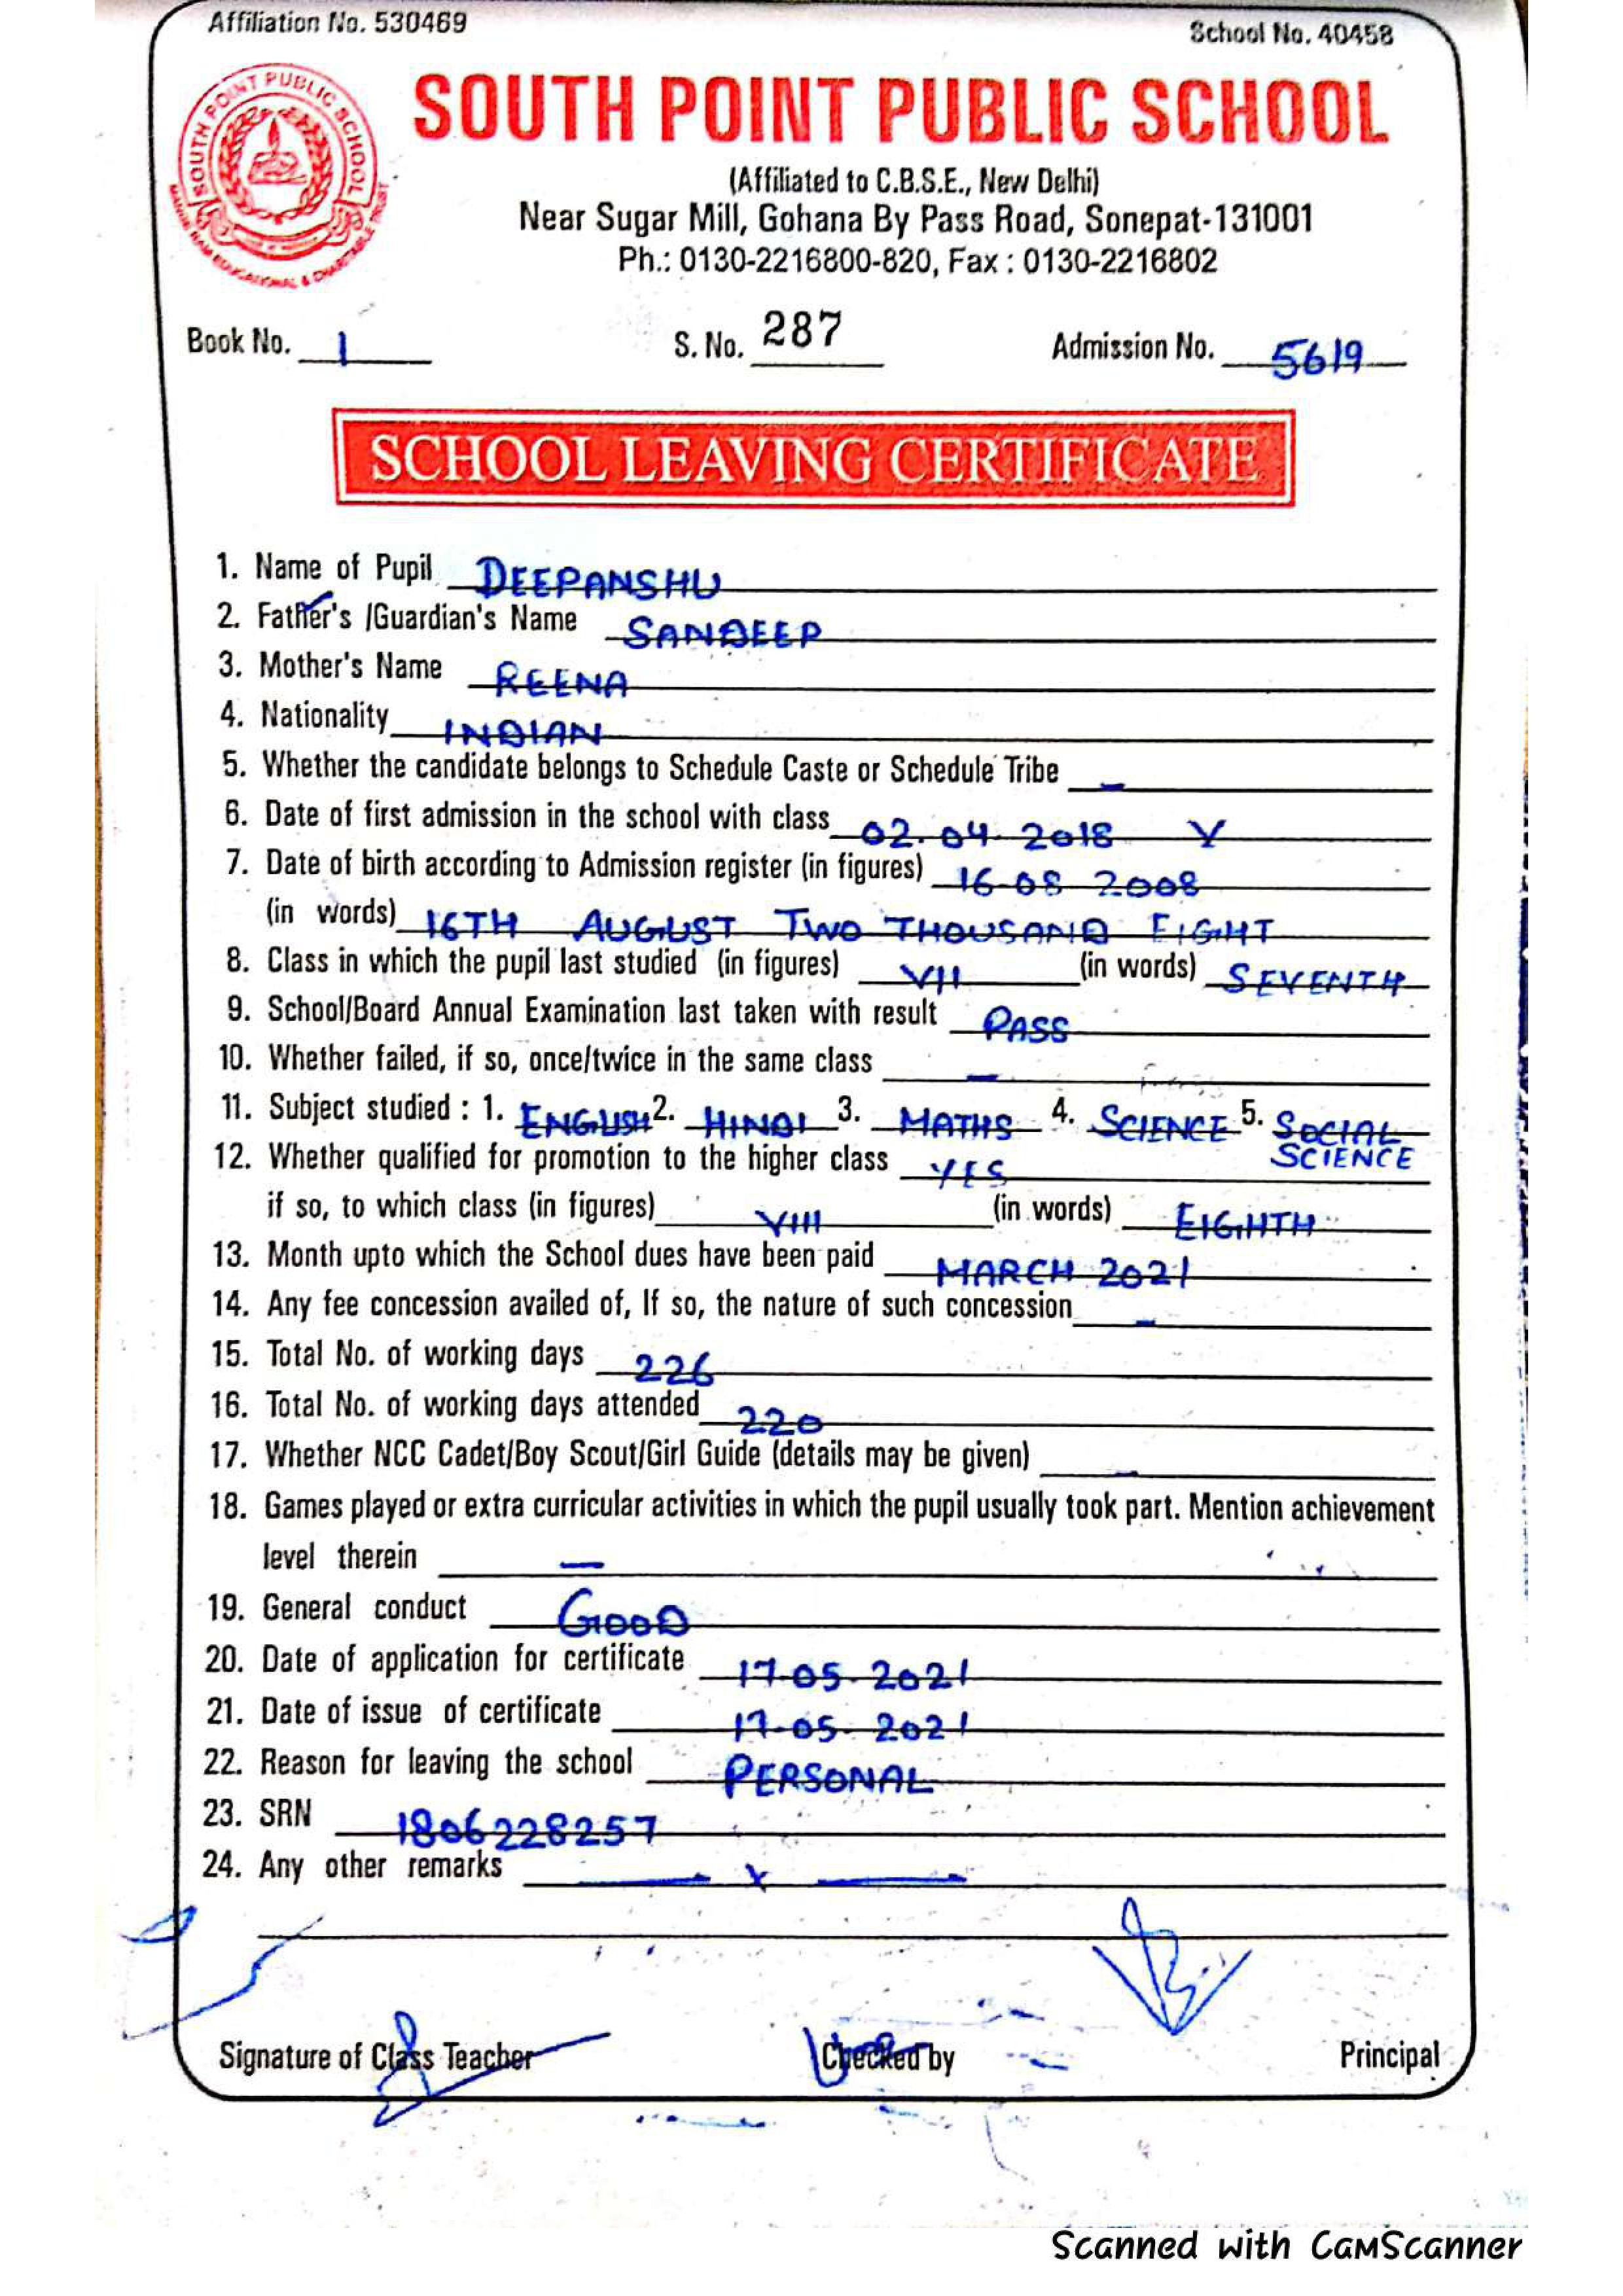 Affiliation No. 530469 School No. 40458
SOUTH POINT PUBLIC SCHOOL
SOUTH POINT PUBLIC SCHOOL
(Affiliated to C.B.S.E., New Delhi)
Near Sugar Mill, Gohana By Pass Road, Sonepat-131001
Ph.: 0130-2216800-820, Fax : 0130-2216802
Book No. 1 S. No. 287 Admission No. 5619
SCHOOL LEAVING CERTIFICATE
1. Name of Pupil DEEPANSHU
2. Father's /Guardian's Name SANDEEP
3. Mother's Name REENA
4. Nationality INDIAN
5. Whether the candidate belongs to Schedule Caste or Schedule Tribe –
6. Date of first admission in the school with class 02.04.2018 V
7. Date of birth according to Admission register (in figures) 16-08 2008
(in words) 16TH AUGUST TWO THOUSAND EIGHT
8. Class in which the pupil last studied (in figures) VII (in words) SEVENTH
9. School/Board Annual Examination last taken with result PASS
10. Whether failed, if so, once/twice in the same class –
11. Subject studied : 1. ENGLISH 2. HINDI 3. MATHS 4. SCIENCE 5. SOCIAL SCIENCE
12. Whether qualified for promotion to the higher class YES
if so, to which class (in figures) VIII (in words) EIGHTH
13. Month upto which the School dues have been paid MARCH 2021
14. Any fee concession availed of, If so, the nature of such concession –
15. Total No. of working days 226
16. Total No. of working days attended 220
17. Whether NCC Cadet/Boy Scout/Girl Guide (details may be given) –
18. Games played or extra curricular activities in which the pupil usually took part. Mention achievement
level therein –
19. General conduct GOOD
20. Date of application for certificate 17-05-2021
21. Date of issue of certificate 17-05-2021
22. Reason for leaving the school PERSONAL
23. SRN 1806228257
24. Any other remarks — x —
Signature of Class Teacher Checked by Principal
Scanned with CamScanner